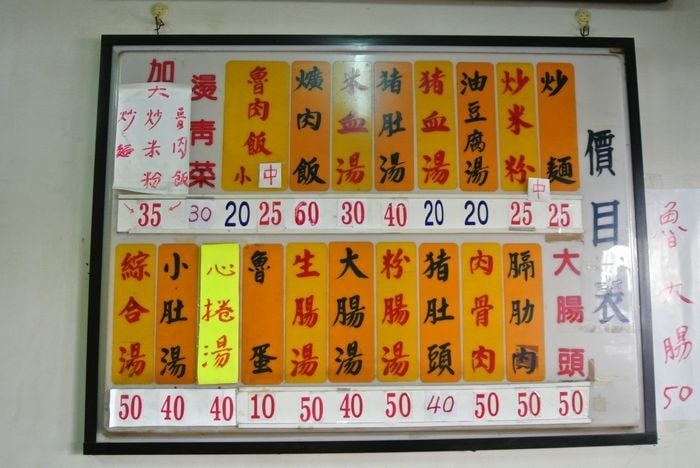 價目表
炒麵
25
炒米粉
中
25
油豆腐湯
20
猪血湯
20
猪肚湯
40
米血湯
30
爌肉飯
60
魯肉飯
小 中
20 25
燙青菜
30
加大
魯肉飯
炒米粉
炒麵
35
大腸頭
50
膈肋肉
50
肉骨肉
50
猪肚頭
40
粉腸湯
50
大腸湯
40
生腸湯
50
魯蛋
10
心捲湯
40
小肚湯
40
綜合湯
50
魯大腸
50